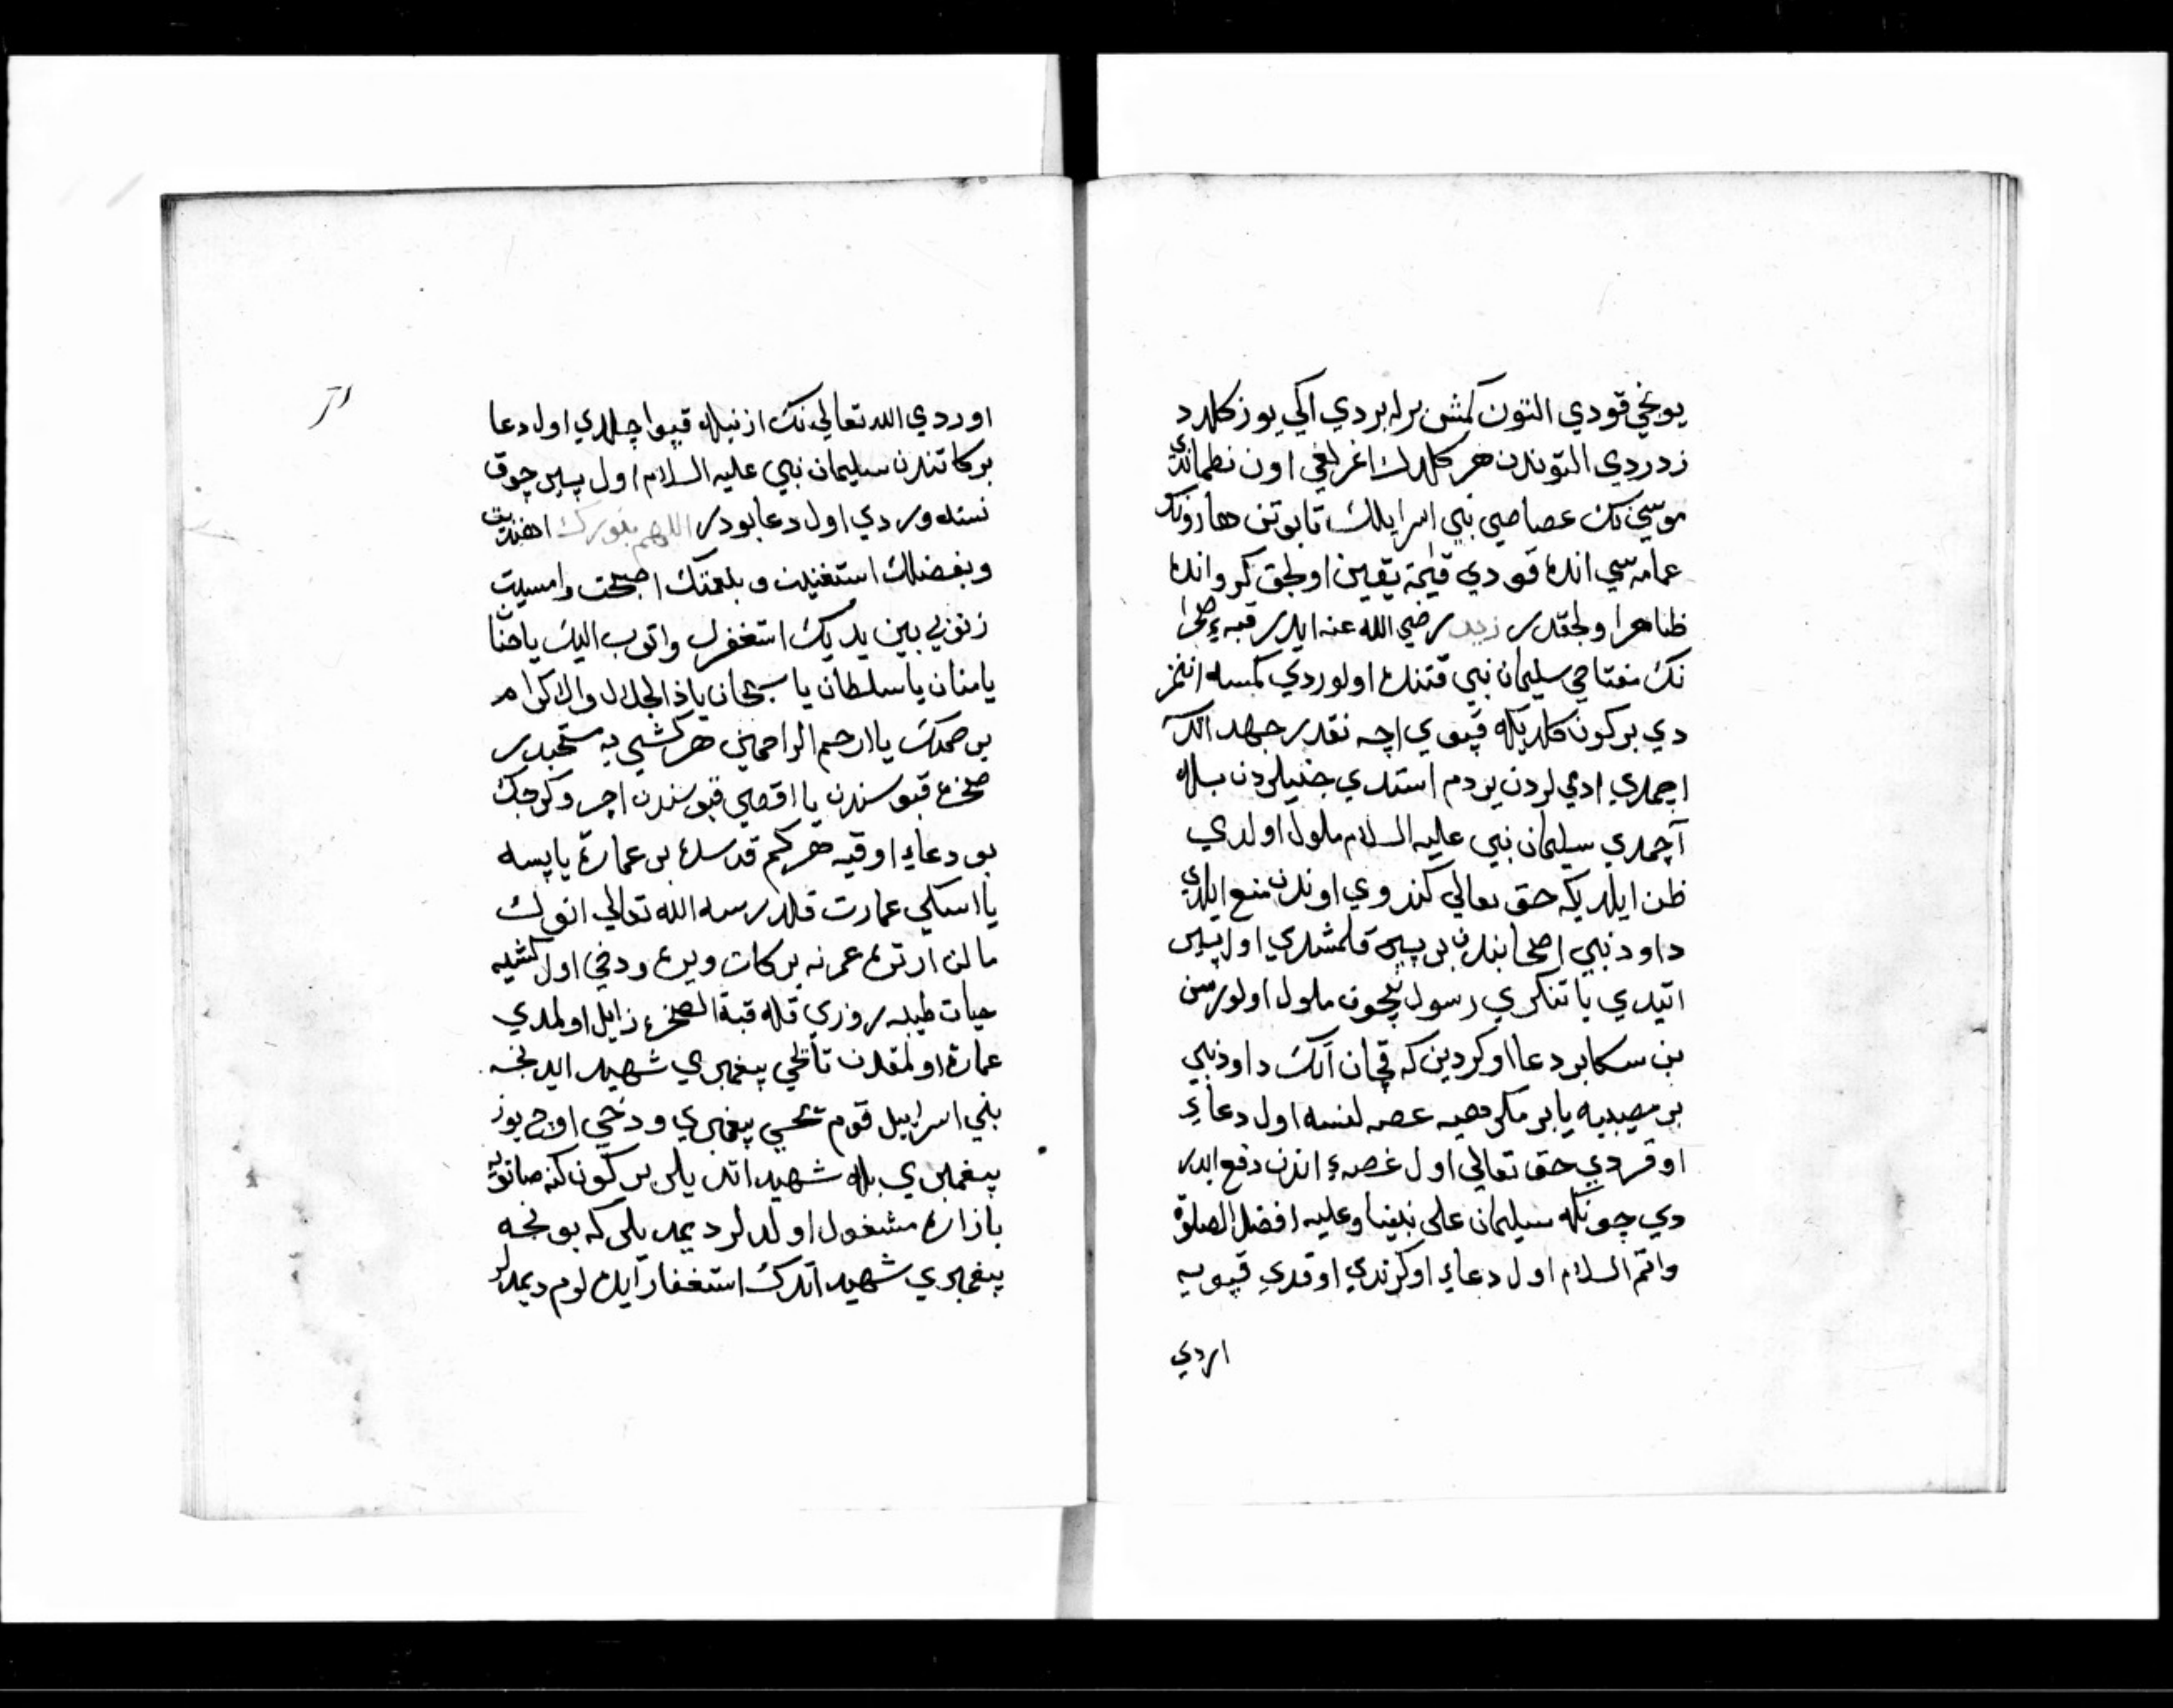 يونجي قودي التون كمش برله بردي اكي يوز كلد د
زدردي التوندن هر كلدك اغرلغي اون نطماندي
موسي نك عصاصي بني اسرايلك تابوتن هارونك
عمامه سي انده قودي قيمة يقين اولجق كرو انده
ظاهر اولجقدر زيد رضي الله عنه ايدر قبهء صخرا
نك مفتاحي سليمان نبي قتنده اولوردي كمسه انمز
دي بر كون كلديكه قپوي اچه نقدر جهد اتدك
اچمدي ادمي لردن يردم استدي جنيلردن بله
آچمدي سليمان نبي عليه السلام ملول اولدي
ظن ايلديكه حق تعالي كندوي اوندن منع ايلدي
داود نبي اصحابندن بر پير قلمشدي اول پير
اتيدي يا تنكري رسول نيچون ملول اولورسن
بن سكا بر دعا اوكردين كه قچان آنك داود نبي
بر مصيبيه يا بر مكروهيه عصه لنسه اول دعاء
اوقردي حق تعالي اول غصهء اندن دفع ايدر
دي چونكه سليمان على نبينا وعليه افضل الصلوة
واتم السلام اول دعاء اوكرندي اوقدي قپويه
اردي
اوردي الله تعالي نك ازنيله قپو اچلدي اول دعا
بركاتندن سليمان نبي عليه السلام اول پير چوق
نسنه وردي اول دعا بودر اللهم بنورك اهتديت
وبفضلك استغنيت وبنعمتك اصبحت وامسيت
زنوبي بين يديك استغفرك واتوب اليك يا حنان
يا منان يا سلطان يا سبحان يا ذا الجلال والاكرام
برحمتك يا ارحم الراحمين هر كشي يه مستحبدر
صخره قپوسندن يا اقصي قپوسندن اچرو كرجك
بو دعاء اوقيه هر كم قدسده بر عمارة ياپسه
يا اسكي عمارت قلدرسه الله تعالي انوك
مالن ارتره عمرنه بركات ويره ودخي اول كشيه
حيات طيبه روزي قله قبة الصخره زايل اولمدي
عمارة اولمقدن تا يحيي پيغمبري شهيد ايدنجه
بني اسرايل قوم يحيي پيغمبري ودخي اوچ يوز
پيغمبري بله شهيد اتديلر بر كون كنه صاتو
بازاره مشغول اولدلر ديمديلر كه بونجه
پيغمبري شهيد اتدك استغفار ايده لوم ديمدلر